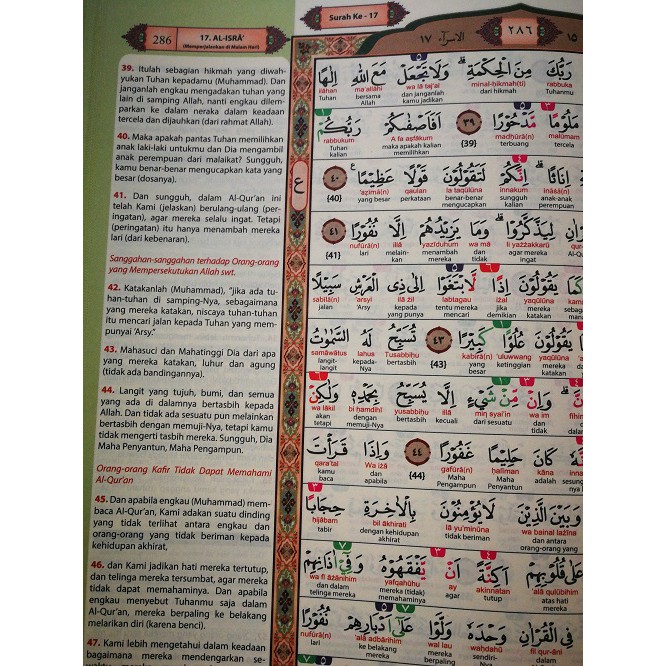 286
17. AL-ISRÂ'
(Memperjalankan di Malam Hari)
39. Itulah sebagian hikmah yang diwah-
yukan Tuhan kepadamu (Muhammad). Dan
janganlah engkau mengadakan tuhan yang
lain di samping Allah, nanti engkau dilem-
parkan ke dalam neraka dalam keadaan
tercela dan dijauhkan (dari rahmat Allah).
40. Maka apakah pantas Tuhan memilihkan
anak laki-laki untukmu dan Dia mengambil
anak perempuan dari malaikat? Sungguh,
kamu benar-benar mengucapkan kata yang
besar (dosanya).
41. Dan sungguh, dalam Al-Qur'an ini
telah Kami (jelaskan) berulang-ulang (per-
ingatan), agar mereka selalu ingat. Tetapi
(peringatan) itu hanya menambah mereka
lari (dari kebenaran).
Sanggahan-sanggahan terhadap Orang-orang
yang Mempersekutukan Allah swt.
42. Katakanlah (Muhammad), "jika ada tu-
han-tuhan di samping-Nya, sebagaimana
yang mereka katakan, niscaya tuhan-tuhan
itu mencari jalan kepada Tuhan yang mem-
punyai 'Arsy."
43. Mahasuci dan Mahatinggi Dia dari apa
yang mereka katakan, luhur dan agung
(tidak ada bandingannya).
44. Langit yang tujuh, bumi, dan semua
yang ada di dalamnya bertasbih kepada
Allah. Dan tidak ada sesuatu pun melainkan
bertasbih dengan memuji-Nya, tetapi kamu
tidak mengerti tasbih mereka. Sungguh, Dia
Maha Penyantun, Maha Pengampun.
Orang-orang Kafir Tidak Dapat Memahami
Al-Qur'an
45. Dan apabila engkau (Muhammad) mem-
baca Al-Qur'an, Kami adakan suatu dinding
yang tidak terlihat antara engkau dan
orang-orang yang tidak beriman kepada
kehidupan akhirat,
46. dan Kami jadikan hati mereka tertutup,
dan telinga mereka tersumbat, agar mereka
tidak dapat memahaminya. Dan apabila
engkau menyebut Tuhanmu saja dalam
Al-Qur'an, mereka berpaling ke belakang
melarikan diri (karena benci).
47. Kami lebih mengetahui dalam keadaan
bagaimana mereka mendengarkan se-
Surah Ke - 17
١٥ ٢٨٦ الاسراء ١٧
رَبُّكَ مِنَ الْحِكْمَةِ ۗ وَلَا تَجْعَلْ مَعَ اللّٰهِ اِلٰهًا
ilâhan ma'allâhi wa lâ taj'al minal-hikmah(ti) rabbuka
Tuhan bersama Allah dan janganlah kamu jadikan dari hikmah Tuhanmu
مَلُوْمًا مَّدْحُوْرًا ٣٩ اَفَاَصْفٰىكُمْ رَبُّكُمْ
rabbukum A fa aṣfâkum {39} madhûrâ(n) malûmam
Tuhan kalian maka apakah kalian memilihkan terbuang tercela
اِنَاثًا ۗ اِنَّكُمْ لَتَقُوْلُوْنَ قَوْلًا عَظِيْمًا ٤٠
{40} 'aẓîmâ(n) qaulan la taqûlûna innakum inâṡâ(n)
yang besar perkataan benar-benar mengucapkan sesungguhnya kamu anak perempuan
لِيَذَّكَّرُوْا ۗ وَمَا يَزِيْدُهُمْ اِلَّا نُفُوْرًا ٤١
{41} nufûrâ(n) illâ yazîduhum wa mâ li yażżakkarû
lari melain-kan menambah mereka dan tidak agar mereka ingat
كَمَا يَقُوْلُوْنَ اِذًا لَّابْتَغَوْا اِلٰى ذِى الْعَرْشِ سَبِيْلًا
sabîlâ(n) 'arsyi ilâ żil labtagau iżal yaqûlûna
jalan 'Arsy kepada yang punya tentu mereka mencari jika demikian mereka katakan
يَقُوْلُوْنَ عُلُوًّا كَبِيْرًا ٤٣ تُسَبِّحُ لَهُ السَّمٰوٰتُ
samâwâtus lahus Tusabbiḥu {43} kabîrâ(n) 'uluwwang yaqûlûna
langit-langit kepada-Nya bertasbih yang besar ketinggian mereka katakan
وَاِنْ مِّنْ شَيْءٍ اِلَّا يُسَبِّحُ بِحَمْدِهٖ وَلٰكِنْ
wa lâkil bi ḥamdihî yusabbiḥu illâ min syai'in wa im
akan tetapi dengan memuji-Nya bertasbih kecuali dari sesuatu dan tidak
كَانَ حَلِيْمًا غَفُوْرًا ٤٤ وَاِذَا قَرَأْتَ
qara'tal Wa iżâ {44} gafûrâ(n) ḥalîman kâna
kamu baca dan apabila Maha Pengampun Maha Penyantun adalah
وَبَيْنَ الَّذِيْنَ لَا يُؤْمِنُوْنَ بِالْاٰخِرَةِ حِجَابًا
ḥijâbam bil âkhirati lâ yu'minûna wa bainal lażîna
tabir dengan kehidupan akhirat tidak beriman dan antara orang-orang yang
عَلٰى قُلُوْبِهِمْ اَكِنَّةً اَنْ يَّفْقَهُوْهُ وَفِيْٓ اٰذَانِهِمْ
wa fî âżânihim yafqahûhu ay akinnatan 'alâ qulûbihim
dan dalam telinga mereka mereka (tidak) memahaminya agar tutup atas hati mereka
فِى الْقُرْاٰنِ وَحْدَهٗ وَلَّوْا عَلٰٓى اَدْبَارِهِمْ نُفُوْرًا
nufûrâ(n) 'alâ adbârihim wal lau waḥdahû fil qur'âni
lari ke belakang mereka mereka berpaling sendiri dalam Al-Qur'an